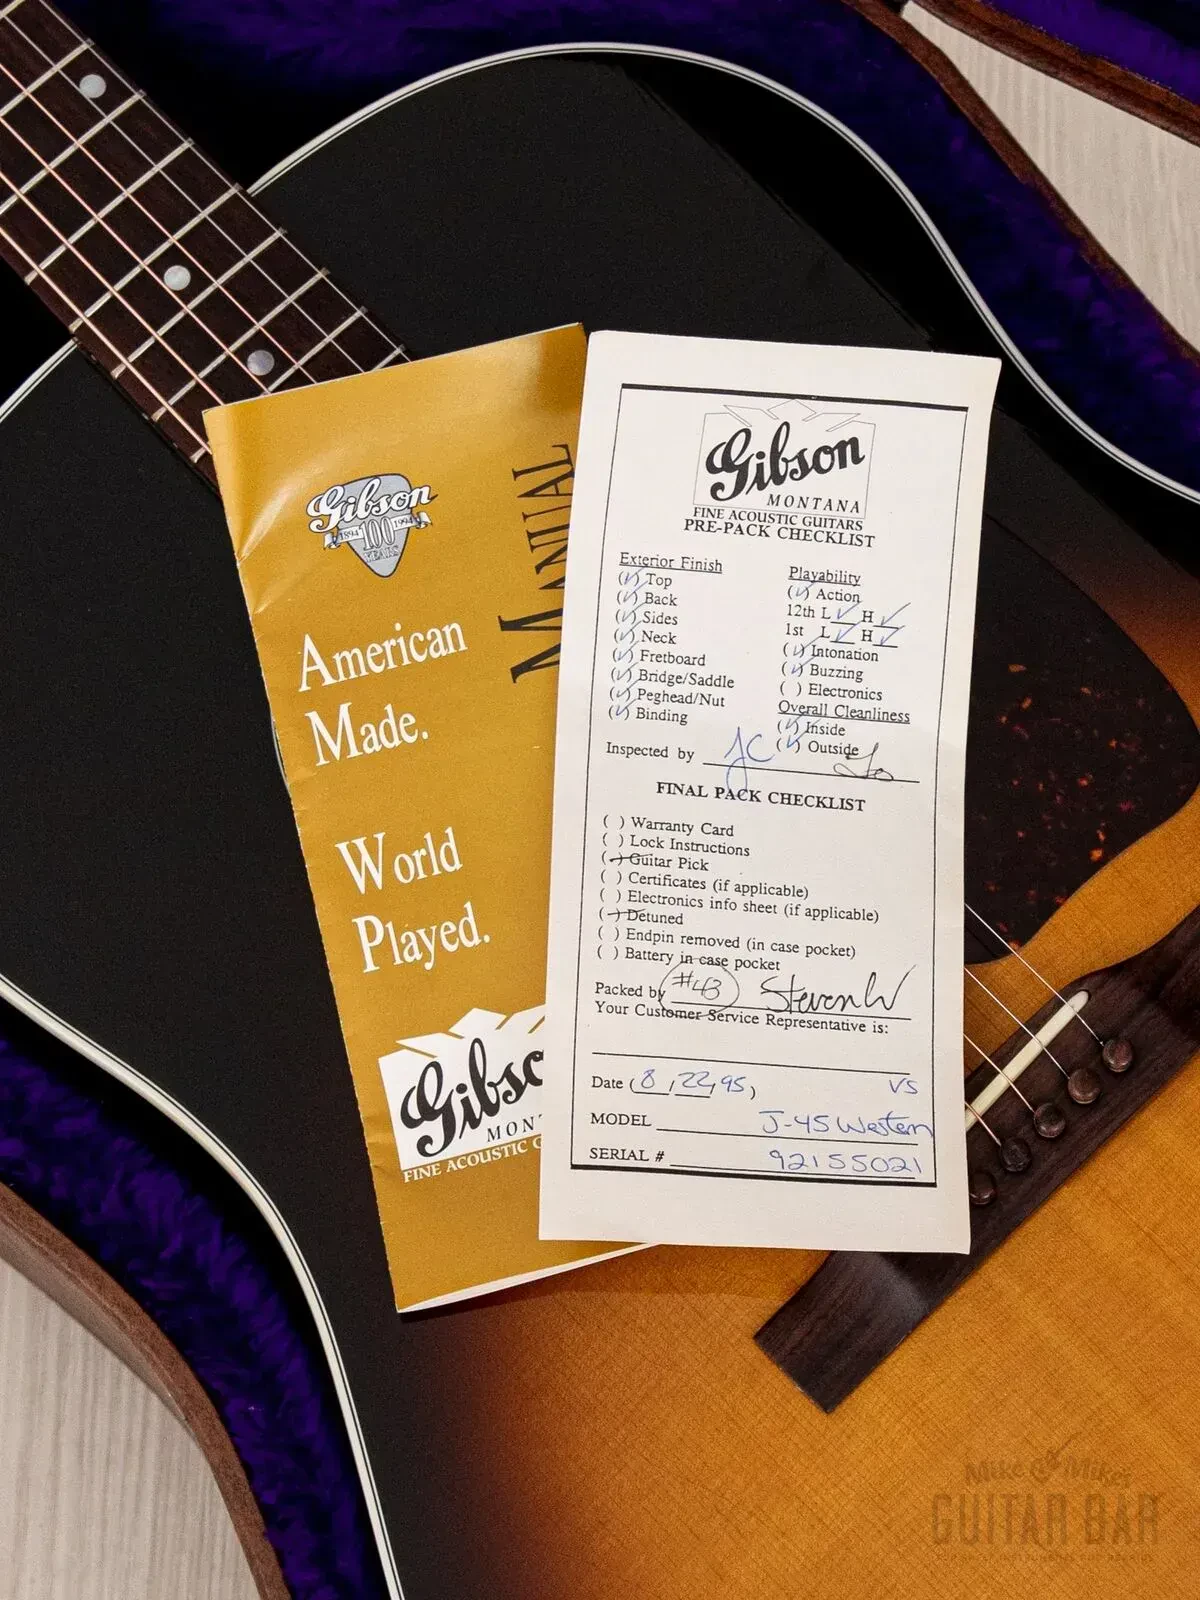 Gibson
1894 100 1994
YEARS
American
Made.
World
Played.
MANUAL
Gibso
MONT
FINE ACOUSTIC G
Gibson
MONTANA
FINE ACOUSTIC GUITARS
PRE-PACK CHECKLIST
Exterior Finish
(✓) Top
(✓) Back
(✓) Sides
(✓) Neck
(✓) Fretboard
(✓) Bridge/Saddle
(✓) Peghead/Nut
(✓) Binding
Playability
(✓) Action
12th L ✓ H ✓
1st L ✓ H ✓
(✓) Intonation
(✓) Buzzing
( ) Electronics
Overall Cleanliness
(✓) Inside
(✓) Outside
Inspected by JC
FINAL PACK CHECKLIST
( ) Warranty Card
( ) Lock Instructions
(-) Guitar Pick
( ) Certificates (if applicable)
( ) Electronics info sheet (if applicable)
(-) Detuned
( ) Endpin removed (in case pocket)
( ) Battery in case pocket
Packed by #43 Steven W
Your Customer Service Representative is:
Date (8, 22, 95,) VS
MODEL J-45 Western
SERIAL # 92155021
Mike & Mike's
GUITAR BAR